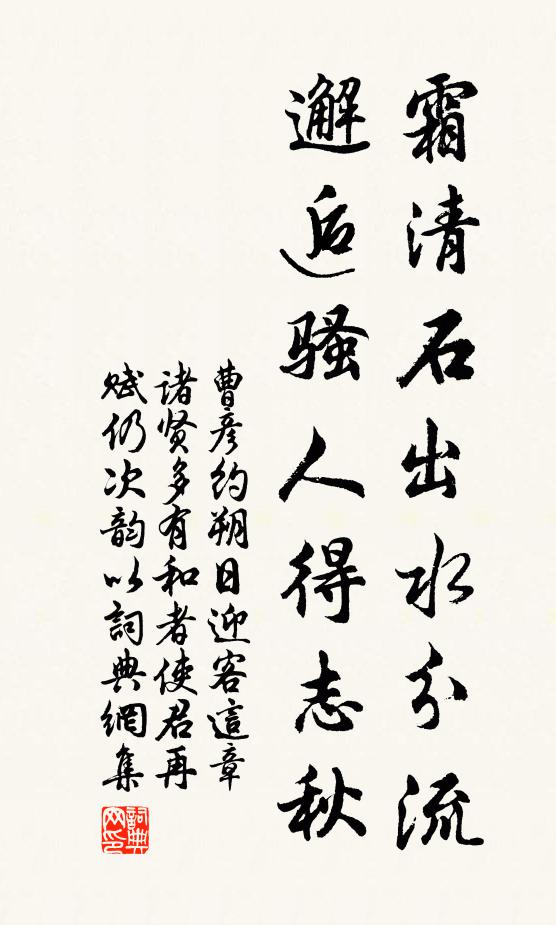 霜清石出水分流
邂逅骚人得志秋
曹彦约朔日迎客這章
諸贤多有和者使君再
赋仍次韵以詞典網集
詞典网印